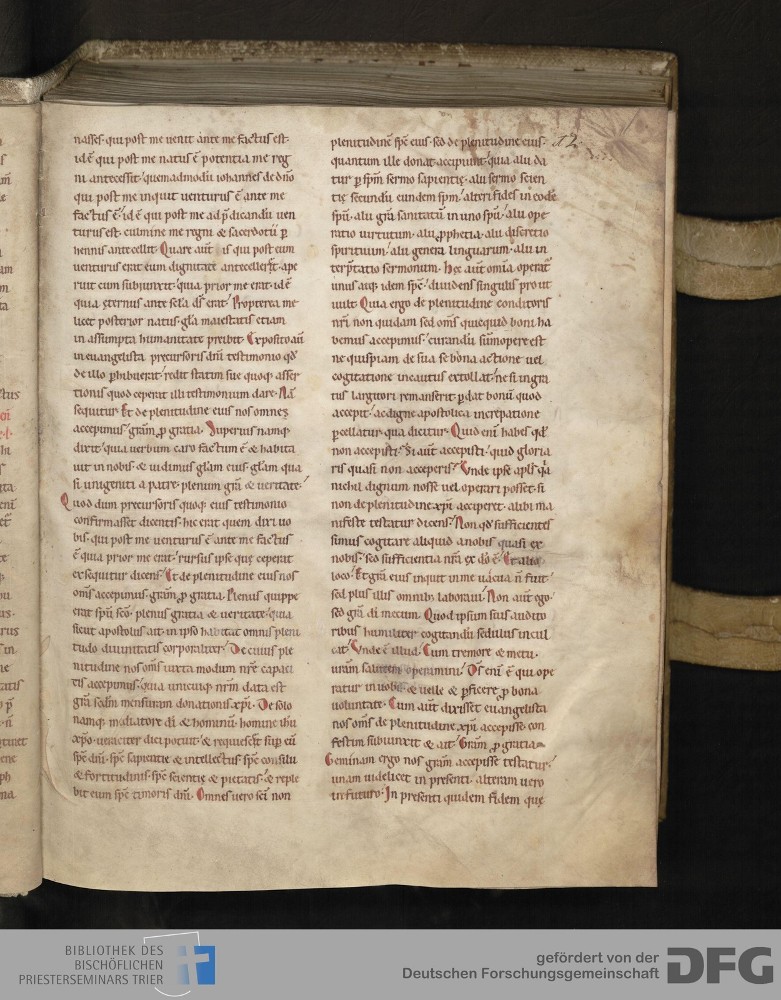 nasses· qui post me uenit ante me factus est·
id ē qui post me natus ē potentia me reg
ni antecessit· quemadmodū iohannes de dño
qui post me inquit uenturus ē ante me
factus ē· id ē qui post me ad p̄dicandū uen
turus est· culmine me regni & sacerdotii p
hennis antecellit· Quare aūt is qui post eum
uenturus erat eum dignitate antecelleret· ape
ruit cum subiunxit· quia prior me erat· id ē
quia ęternus ante scła ds̄ erat· Propterea me
licet posterior natus· gła maiestatis etiam
in assumpta humanitate preibit· Exposito aūt
in euangelista precursoris dñi testimonio qd̄
de illo phibuerat· redit statim sue quoq; asser
tionis quod ceperat illi testimonium dare· Nā
sequitur Et de plenitudine eius nos omnes
accepimus· grām p gratia· Superius namq;
dixit· quia uerbum caro factum ē & habita
uit in nobis· & uidimus głam eius· głam qua
si unigeniti a patre· plenum grā & ueritate·
Quod dum precursoris quoq; eius testimonio
confirmasset dicentis· hic erat quem dixi uo
bis· qui post me uenturus ē ante me factus
ē quia prior me erat· rursus ipse que ceperat
exsequitur dicens· Et de plenitudine eius nos
oms̄ accepimus· grām p gratia· Plenus quippe
erat spū sco· plenus gratia & ueritate· quia
sicut apostolus ait· in ipso habitat omnis pleni
tudo diuinitatis corporaliter· De cuius ple
nitudine nos oms̄ iuxta modum nrē capaci
tis accepimus· quia unicuiq; nrm̄ data est
grā scdm̄ mensuram donationis xpi· De solo
namq; mediatore di & hominū· homine ihu
xpo· ueraciter dici potuit· & requiescet sup eū
spc dni· spc sapientie & intellectus· spc consilii
& fortitudinis· spc scientię & pietatis· & reple
bit eum spc timoris dni· Omnes uero sci non
12
plenitudinē spc eius· sed de plenitudine eius·
quantum ille donat accipiunt· quia alii da
tur p spm̄ sermo sapientię· alii sermo scien
tię secundū eundem spm̄· alteri fides in eodē
spū· alii grā sanitatū in uno spū· alii ope
ratio uirtutum· alii pphetia· alii discretio
spirituum· alii genera linguarum· alii in
terptatio sermonum· Hęc aūt omia operat
unus atq; idem spc· diuidens singulis prout
uult· Quia ergo de plenitudine conditoris
nri non quidam sed oms̄ quicquid boni ha
bemus accepimus· curandū summopere est
ne quispiam de sua se bona actione uel
cogitatione incautus extollat· ne si ingra
tus largitori remanserit· pdat bonū quod
accepit· ac digne apostolica increpatione
pcellatur· qua dicitur· Quid enī habes qd̄
non accepisti· Si aūt accepisti· quid gloria
ris quasi non acceperis· Unde ipse apls̄ qa
nichil dignum nosse uel operari posset· si
non de plenitudine xpi acciperet· alibi ma
nifeste testatur dicens· Non qd̄ sufficientes
simus cogitare aliquid a nobis quasi ex
nobis· sed sufficientia nra ex do ē· Et alio
loco· Et grā eius inquit in me uacua n̄ fuit·
sed plus illis omnib; laboraui· Non aūt ego·
sed grā di mecum· Quod ipsum suis audito
ribus humiliter cogitandū sedulus incul
cat· Unde ē illud· Cum tremore & metu·
uram̄ salutem operamini· Ds̄ enī ē qui ope
ratur in uobis & uelle & pficere p bona
uoluntate· Cum aūt dixisset euangelista
nos oms̄ de plenitudine xpi accepisse· con
festim subiunxit & ait· Grām p gratia·
Geminam ergo nos grām accepisse testatur·
unam uidelicet in presenti· alteram uero
in futuro· In presenti quidem fidem quę
BIBLIOTHEK DES
BISCHÖFLICHEN
PRIESTERSEMINARS TRIER
gefördert von der
Deutschen Forschungsgemeinschaft
DFG